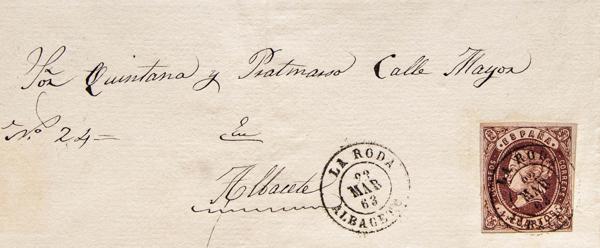 Sor Quintana y Pratmarso Calle Mayor
No. 24=
En
Albacete
LA RODA
23
MAR
63
ALBACETE
ESPAÑA
CORREOS
LA RODA
MAR